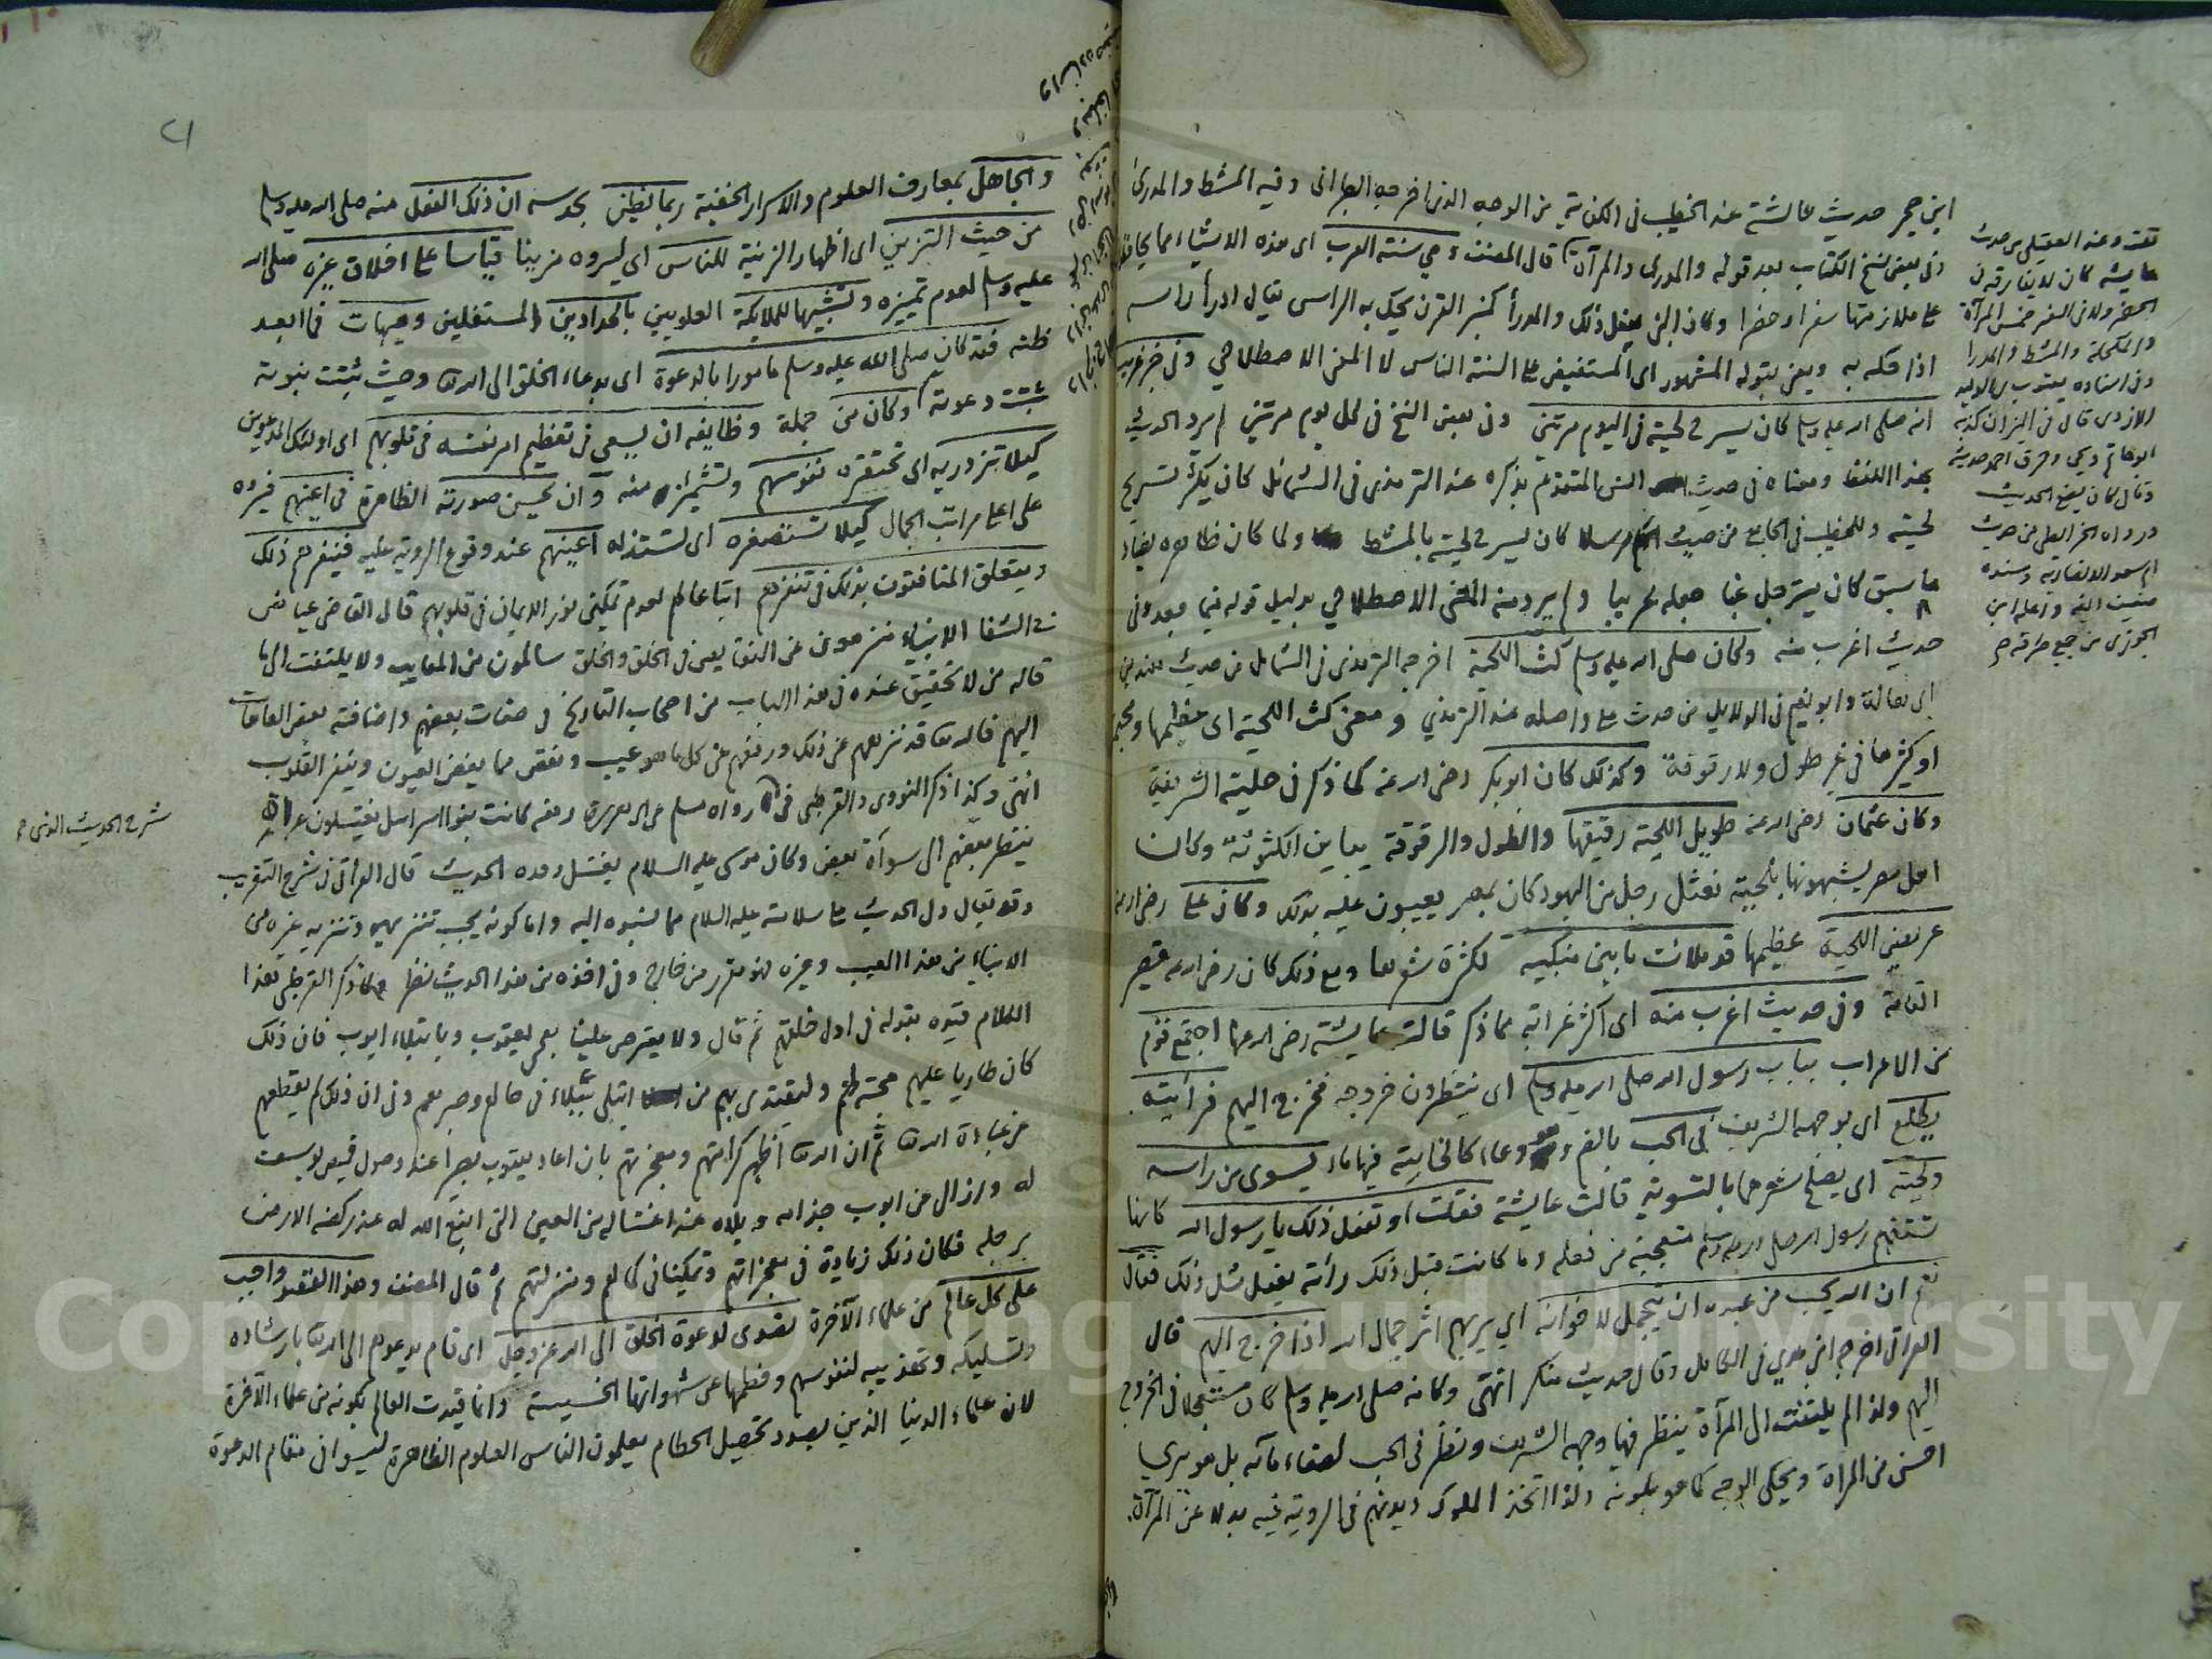 ابن حجر حديث عائشة عند الخطيب في الكفاية من الوجه الذي اخرجه الطبراني وفيه المشط والمدرى
وفي بعض نسخ الكتاب بعد قوله والمدرى والمرآة قال المصنف وهي سنة العرب اى هذه الاشياء مما يحافظ
على ملازمتها سفرا وحضرا وكان النبي يفعل ذلك والمدرأ كمنبر القرن يحك به الراس يقال ادرأ راسه
اذا حكه به ويعنى بقوله المشهور اى المستفيض على السنة الناس لا المعنى الاصطلاحي وفي خبر غريب
انه صلى الله عليه وسلم كان يسرح لحيته في اليوم مرتين وفي بعض النسخ في كل يوم مرتين لم يرد الحديث
بهذا اللفظ ومعناه في حديث انس المتقدم بذكره عند الترمذى في الشمائل كان يكثر تسريح
لحيته وللخطيب في الجامع من حديث الحكم مرسلا كان يسرح لحيته بالمشط ولما كان ظاهره يضاد
ما سبق كان يترجل غبا جعله غريبا ولم يرد منه المعنى الاصطلاحي بدليل قوله فيما بعد وفي
حديث اغرب منه وكان صلى الله عليه وسلم كث اللحية اخرجه الترمذى في الشمائل من حديث هند بن
ابى هالة وابو نعيم في الدلايل من حديث على واصله عند الترمذي ومعنى كث اللحية اى عظيمها
او كثيرها في غير طول ولا رقوقة وكذلك كان ابوبكر رضى الله عنه كما ذكر في حليته الشريفة
وكان عثمان رضى الله عنه طويل اللحية رقيقها والطول والرقوقة يباين الكثوثة وكان
اهل مصر يشبهونها بلحية نعثل رجل من اليهود كان بمصر يعيبون عليه بذلك وكان على رضى الله عنه
عريض اللحية عظيمها قد ملات ما بين منكبيه لكثرة شعرها ومع ذلك كان رضى الله عنه قصير
القامة وفي حديث اغرب منه اى اكثر غرابة مما ذكر قالت عايشة رضى الله عنها اجتمع قوم
من الاعراب بباب رسول الله صلى الله عليه وسلم اى ينتظرون خروجه فخرج اليهم فرأيته
يطلع اى بوجهه الشريف في الحب بالضم وهو وعاء كالخابية فيها ماء ليسوى من راسه
ولحيته اى يصلح شعرهما بالتسوية قالت عايشة فقلت او تفعل ذلك يا رسول الله كانها
تستفهم رسول الله صلى الله عليه وسلم متعجبة من فعله وما كانت قبل ذلك رأته يفعل مثل ذلك فقال
نعم ان الله يحب من عبده ان يتجمل لاخوانه اي يريهم اثر جمال الله اذا خرج اليهم قال
العراقى اخرجه ابن عدي في الكامل وقال حديث منكر انتهى وكانه صلى الله عليه وسلم كان مستعجلا في الخروج
اليهم ولذا لم يلتفت الى المرآة ينظر فيها وجهه الشريف ونظر في الحب لصفاء مآئه بل هو يري
احسن من المرآة ويحكى الوجه كما هو بلونه ولذا اتخذ الملوك ديدنهم في الروية فيه بدلا عن المرآة
عايشة كان لا يفارقه في
الحضر ولا في السفر خمس المرآة
والمكحلة والمشط والمدرا
وفي اسناده يعقوب بن الوليد
الازدى قال في الميزان كذبه
ابو حاتم ويحيى وحرق احمد حديثه
وقال كان يضع الحديث
ورواه الخرايطى من حديث
ام سعد الانصارية وسنده
ضعيف ايضا واعله ابن
الجوزى من جميع طرقه
٢١
والجاهل بمعارف العلوم والاسرار الخفية ربما يظن بحدسه ان ذلك الفعل منه صلى الله عليه وسلم
من حيث التزين اى اظهار الزينة للناس اى ليروه مزينا قياسا على اخلاق غيره صلى الله
عليه وسلم لعدم تمييزه وتشبيها للملايكة العلويين بالحدادين المستفلين وهيهات فما ابعد
ظنه فقد كان صلى الله عليه وسلم مامورا بالدعوة اى بدعاء الخلق الى الله تعالى وحيث ثبتت نبوته
ثبتت دعوته وكان من جملة وظايفه ان يسعى في تعظيم امر نفسه في قلوبهم اى اولئك المدعوين
كيلا تزدريه اى تحتقره نفوسهم وتشمئز منه وان يحسن صورته الظاهرة في اعينهم فيروه
على اعلى مراتب الجمال كيلا تستصغره اى تستذله اعينهم عند وقوع الروية عليه فينفرهم ذلك
ويتعلق المنافقون بذلك في تنفرهم اتباعا لهم لعدم تمكين نور الايمان في قلوبهم قال القاضى عياض
في الشفا الانبياء منزهون عن النقايص في الخلق والخلق سالمون من المعايب ولا يلتفت الى ما
قاله من لا تحقيق عنده في هذا الباب من اصحاب التاريخ في صفات بعضهم واضافته بعض العاهات
اليهم فالله تعالى قد نزههم عن ذلك ورفعهم عن كل ما هو عيب ونقص مما يغض العيون وينفر القلوب
انتهى وكذا ذكر النووى والقرطبى في رواه مسلم عن ابى هريرة رفعه كانت بنو اسرائيل يغتسلون عراة
ينظر بعضهم الى سوأة بعض وكان موسى عليه السلام يغتسل وحده الحديث قال العراقى في شرح التقريب
وقد يقال دل الحديث على سلامته عليه السلام مما نسبوه اليه واما كونه يجب تنزيهه وتنزيه غيره من
الانبياء من هذا العيب وغيره فهو مقرر من خارج وفي اخذه من هذا الحديث نظر ولما ذكر القرطبى هذا
الكلام قيده بقوله في اول خلقهم ثم قال ولا يعترض علينا بعمى يعقوب وبابتلاء ايوب فان ذلك
كان طاريا عليهم محبة لهم وليقتدى بهم من ابتلى ببلاء في حالهم وصبرهم وفي ان ذلك لم يقطعهم
عن عبادة الله تعالى ثم ان الله تعالى اظهر كرامتهم ومعجزتهم بان اعاد يعقوب بصيرا عند وصول قميص يوسف
له وازال عن ايوب جذامه وبلاه عند اغتساله من العين التي انبع الله له عند ركضه الارض
برجله فكان ذلك زيادة في معجزاتهم وتمكينا في كمالهم ومنزلتهم ثم قال المصنف وهذا القصد واجب
على كل عالم من علماء الآخرة تصدى لدعوة الخلق الى الله عز وجل اى قام يدعوهم الى الله تعالى بارشاده
وتسليكه وتهذيبه لنفوسهم وفطمها عن شهواتها الخسيسة وانما قيدت العالم بكونه من علماء الآخرة
لان علماء الدنيا الذين بصدد تحصيل الحطام يعلمون الناس العلوم الظاهرة ليسوا في مقام الدعوة
شرح الحديث الذى
Copyright © King Saud University